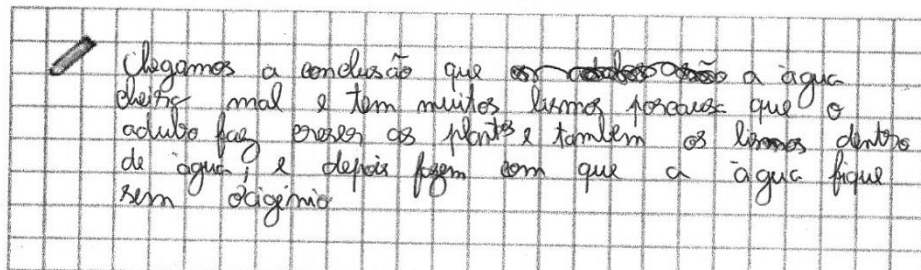 Chegamos a conclusão que a àgua
cheira mal e tem muitos limos porcausa que o
adubo faz creser as plantas e tambem os limos dentro
de àgua, e depois fazem com que a àgua fique
sem ocigénio